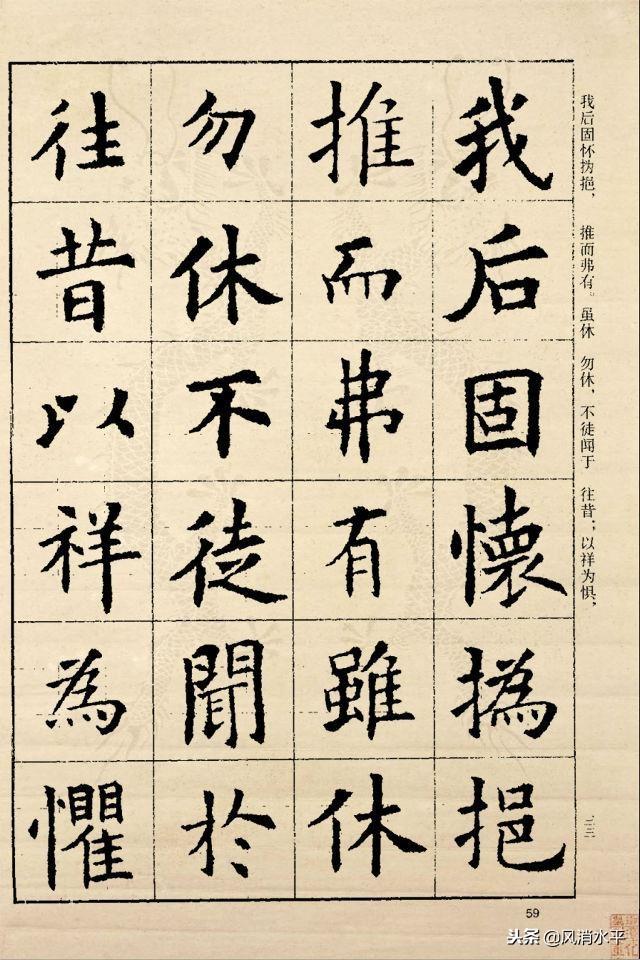 我后固懷撝挹
推而弗有雖休
勿休不徒聞於
往昔以祥為懼
我后固怀㧑挹，推而弗有。虽休勿休，不徒闻于往昔；以祥为惧，
三三
59
头条@风消水平